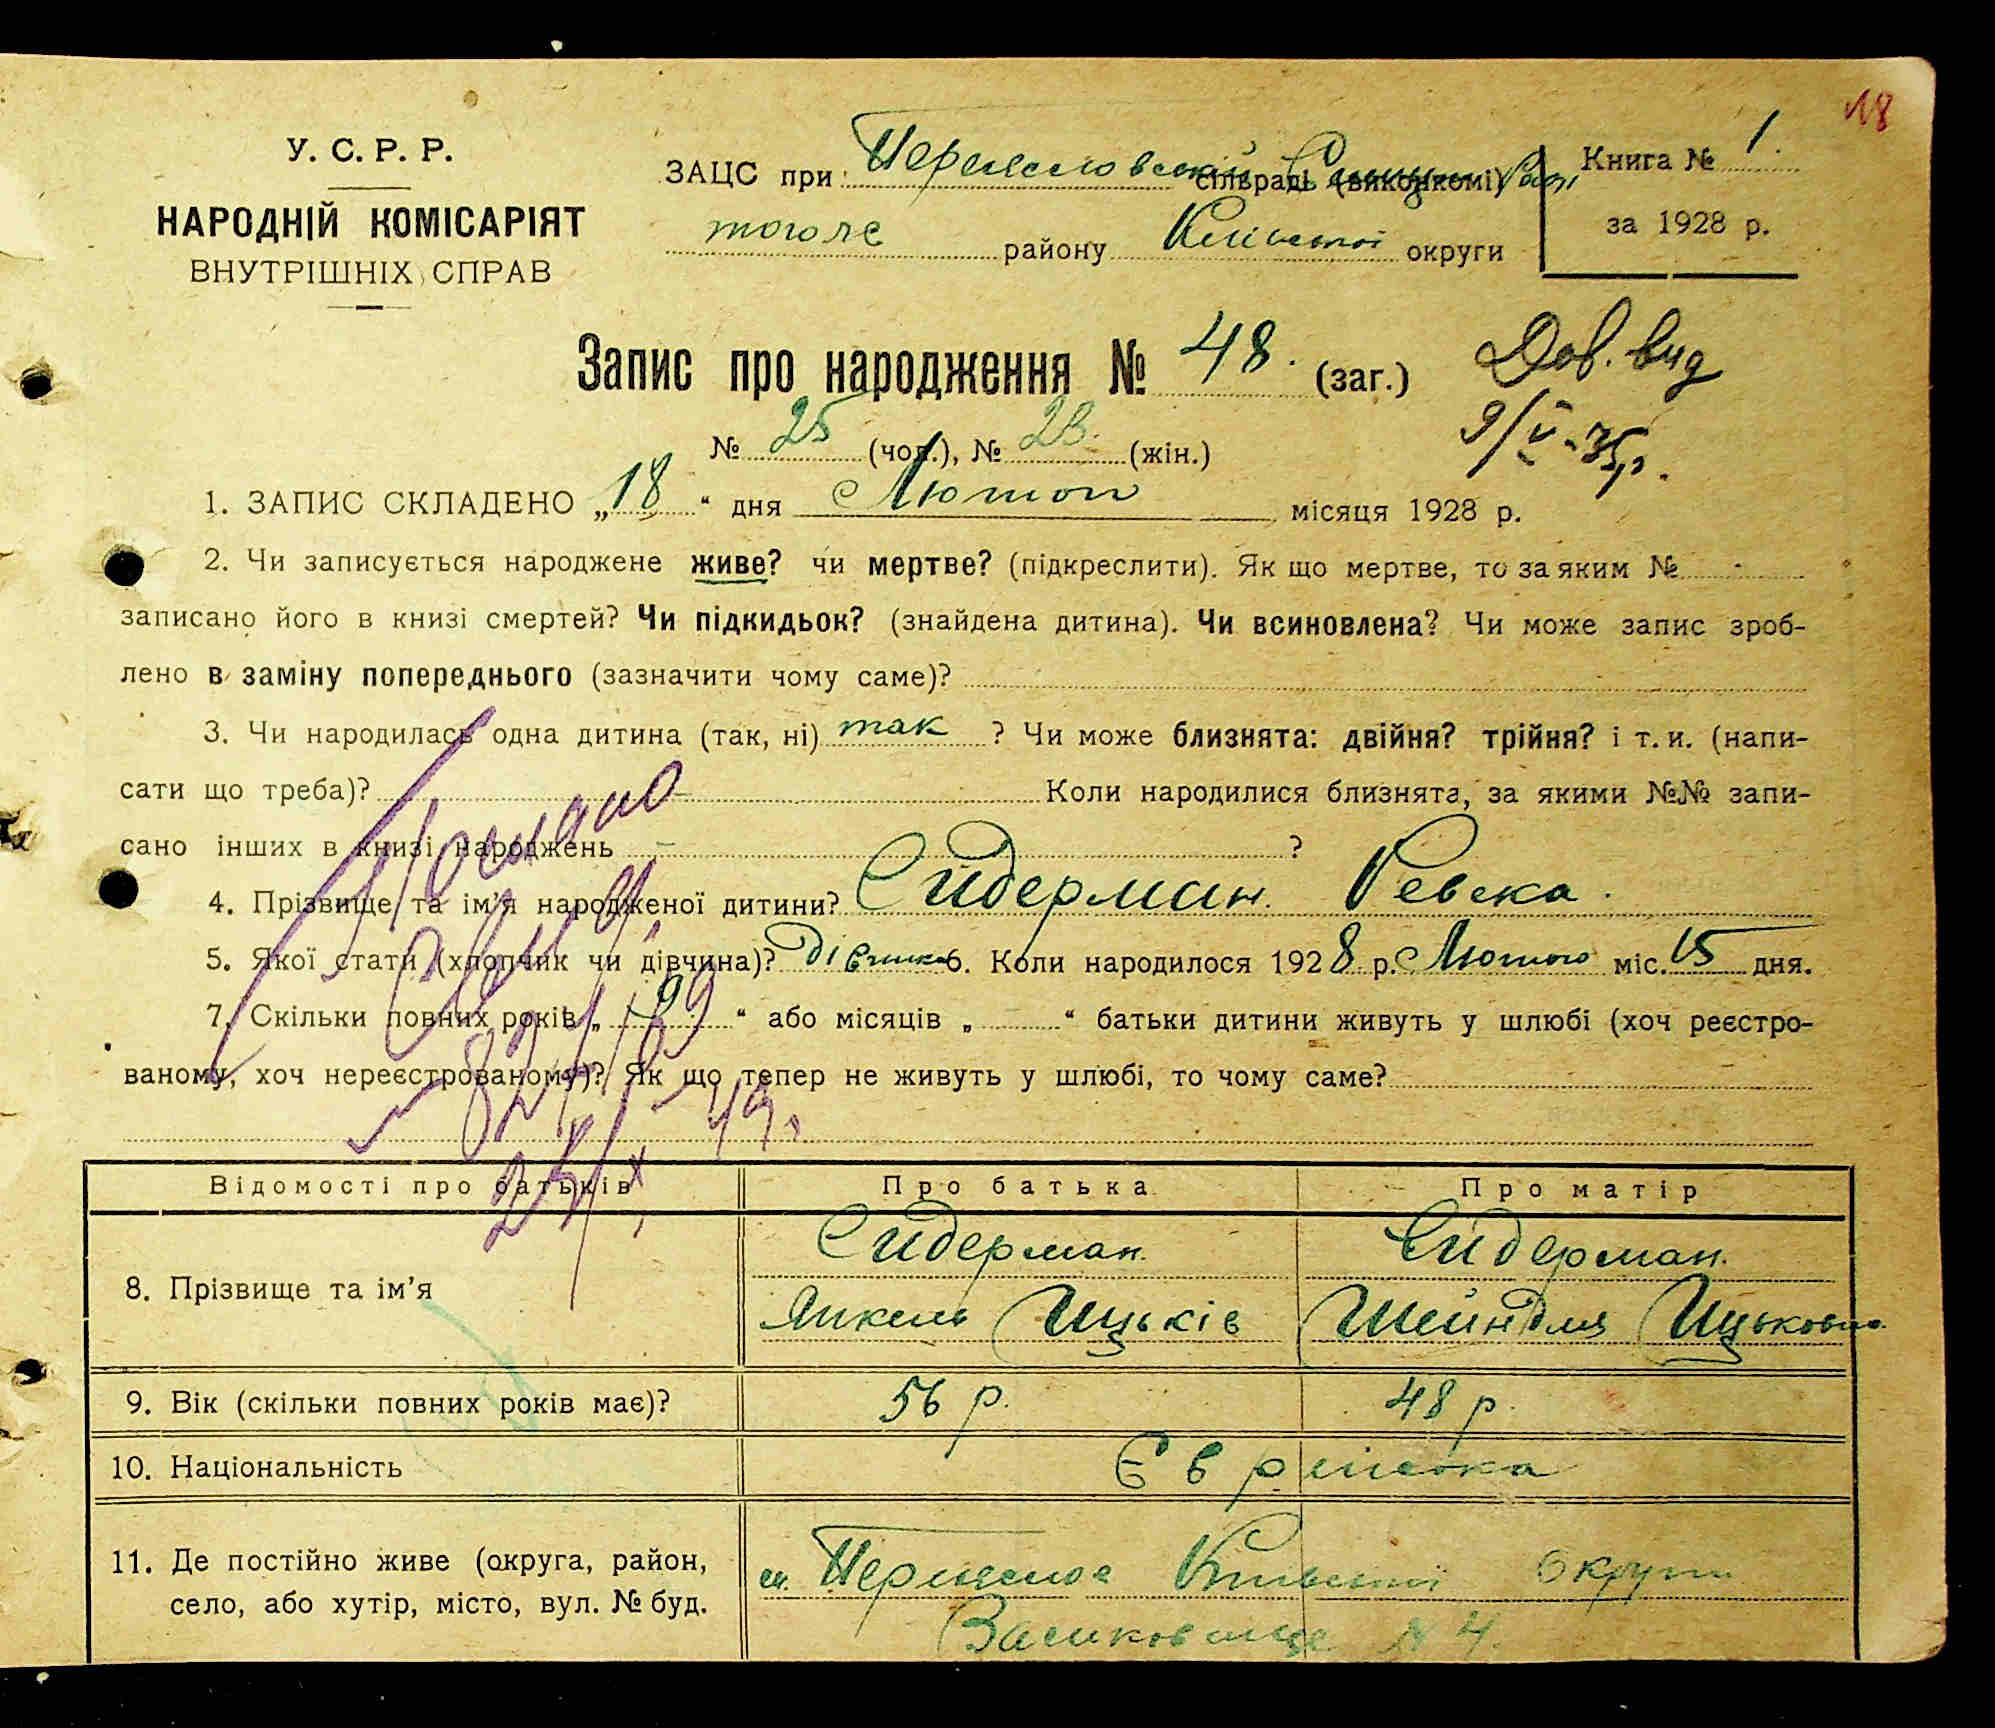 18
У. С. Р. Р.
НАРОДНІЙ КОМІСАРІЯТ
ВНУТРІШНІХ СПРАВ
ЗАЦС при сільраді (виконкомі)
того ж району Київської округи
Книга № 1.
за 1928 р.
Запис про народження № 48. (заг.)
Дов. вид
9/V-35р.
№ 25 (чол.), № 23. (жін.)
1. ЗАПИС СКЛАДЕНО „18“ дня Лютого місяця 1928 р.
2. Чи записується народжене живе? чи мертве? (підкреслити). Як що мертве, то за яким №
записано його в книзі смертей? Чи підкидьок? (знайдена дитина). Чи всиновлена? Чи може запис зроб-
лено в заміну попереднього (зазначити чому саме)?
3. Чи народилась одна дитина (так, ні) так ? Чи може близнята: двійня? трійня? і т. и. (напи-
сати що треба)? Коли народилися близнята, за якими №№ запи-
сано інших в книзі народжень ?
4. Прізвище та ім'я народженої дитини? Сидерман. Ревека.
5. Якої стати (хлопчик чи дівчина)? Дівчинка 6. Коли народилося 1928 р. Лютого міс. 15 дня.
7. Скільки повних років „ “ або місяців „ “ батьки дитини живуть у шлюбі (хоч реєстро-
ваному, хоч нереєстрованому)? Як що тепер не живуть у шлюбі, то чому саме?
Відомості про батьків Про батька Про матір
8. Прізвище та ім'я Сидерман. Сидерман.
Янкель Ицьків Шейндля Ицьковна
9. Вік (скільки повних років має)? 56 р. 48 р.
10. Національність Єврейська
11. Де постійно живе (округа, район, Київської Округи
село, або хутір, місто, вул. № буд. N 4.